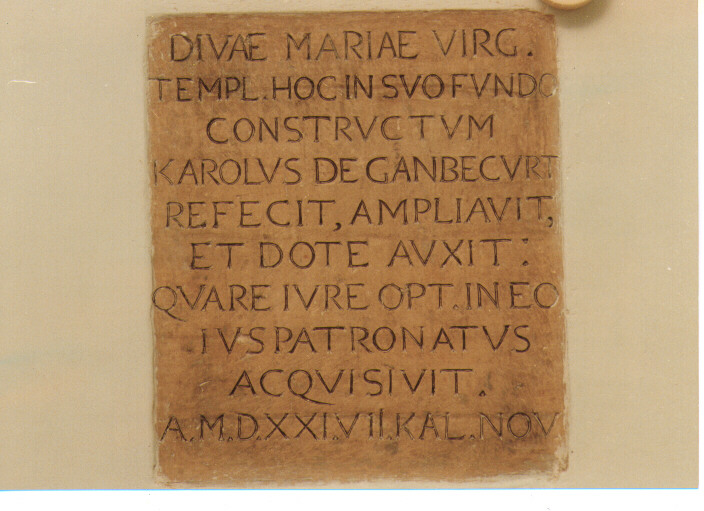 DIVAE MARIAE VIRG.
TEMPL. HOC IN SVO FVNDO
CONSTRVCTVM
KAROLVS DE GANBECVRT
REFECIT, AMPLIAVIT,
ET DOTE AVXIT:
QVARE IVRE OPT. IN EO
IVS PATRONATVS
ACQVISIVIT.
A.M.D.XXI.VII.KAL.NOV